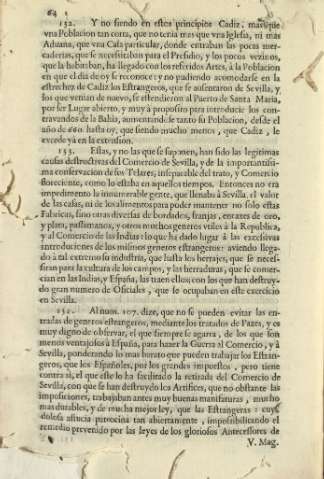 64
132. Y no siendo en estos principios Cadiz, mas que
vna Poblacion tan corta, que no tenia mas que vna Iglesia, ni mas
Aduana, que vna Casa particular, donde entraban las pocas mer-
caderias, que se necessitaban para el Presidio, y los pocos vezinos,
que la habitaban, ha llegado con los referidos Artes, à la Poblacion
en que el dia de oy se reconoce: y no pudiendo acomodarse en la
estrechez de Cadiz los Estrangeros, que se ausentaron de Sevilla, y
los que venian de nuevo, se estendieron al Puerto de Santa Maria,
por ser Lugar abierto, y muy à proposito para introducir los con-
travandos de la Bahia, aumentandose tanto su Poblacion, desde el
año de 660. hasta oy, que siendo mucho menos, que Cadiz, le
excede yà en la extension.
133. Estas, y no las que se suponen, han sido las legitimas
causas destructivas del Comercio de Sevilla, y de la importantissi-
ma conservacion de sus Telares, inseparable del trato, y Comercio
floreciente, como lo estaba en aquellos tiempos. Entonces no era
impedimento la innumerable gente, que llenaba à Sevilla, el valor
de las casas, ni de los alimentos para poder mantener no solo estas
Fabricas, sino otras diversas de bordados, franjas, encajes de oro,
y plata, passamanos, y otros muchos generos vtiles à la Republica,
y al Comercio de las Indias: lo que ha dado lugar à las excessivas
introduciones de los mismos generos estrangeros: aviendo llega-
do à tal extremo su industria, que hasta los herrajes, que se neces-
sitan para la cultura de los campos, y las herraduras, que se comer-
cian en las Indias, y España, las traen ellos; con los que han destruy-
do gran numero de Oficiales, que se ocupaban en este exercicio
en Sevilla.
Al num. 107. dize, que no se pueden evitar las en-
tradas de generos estrangeros, mediante los tratados de Pazes, y es
muy digno de observar, el que siempre se agarra, de los que son
menos ventajosos à España, para hazer la Guerra al Comercio, y à
Sevilla, ponderando lo mas barato que pueden trabajar los Estran-
geros, que los Españoles, por los grandes impuestos, pero tiene
contra si, el que esto lo ha facilitado la retirada del Comercio de
Sevilla, con que se han destruydo los Artifices, que no obstante las
imposiciones, trabajaban antes muy buenas manifaturas, mucho
mas durables, y de mucha mejor ley, que las Estrangeras: cuya
dolosa astucia patrocina tan abiertamente, impossibilitando el
remedio prevenido por las leyes de los gloriosos Antecessores de
V. Mag.